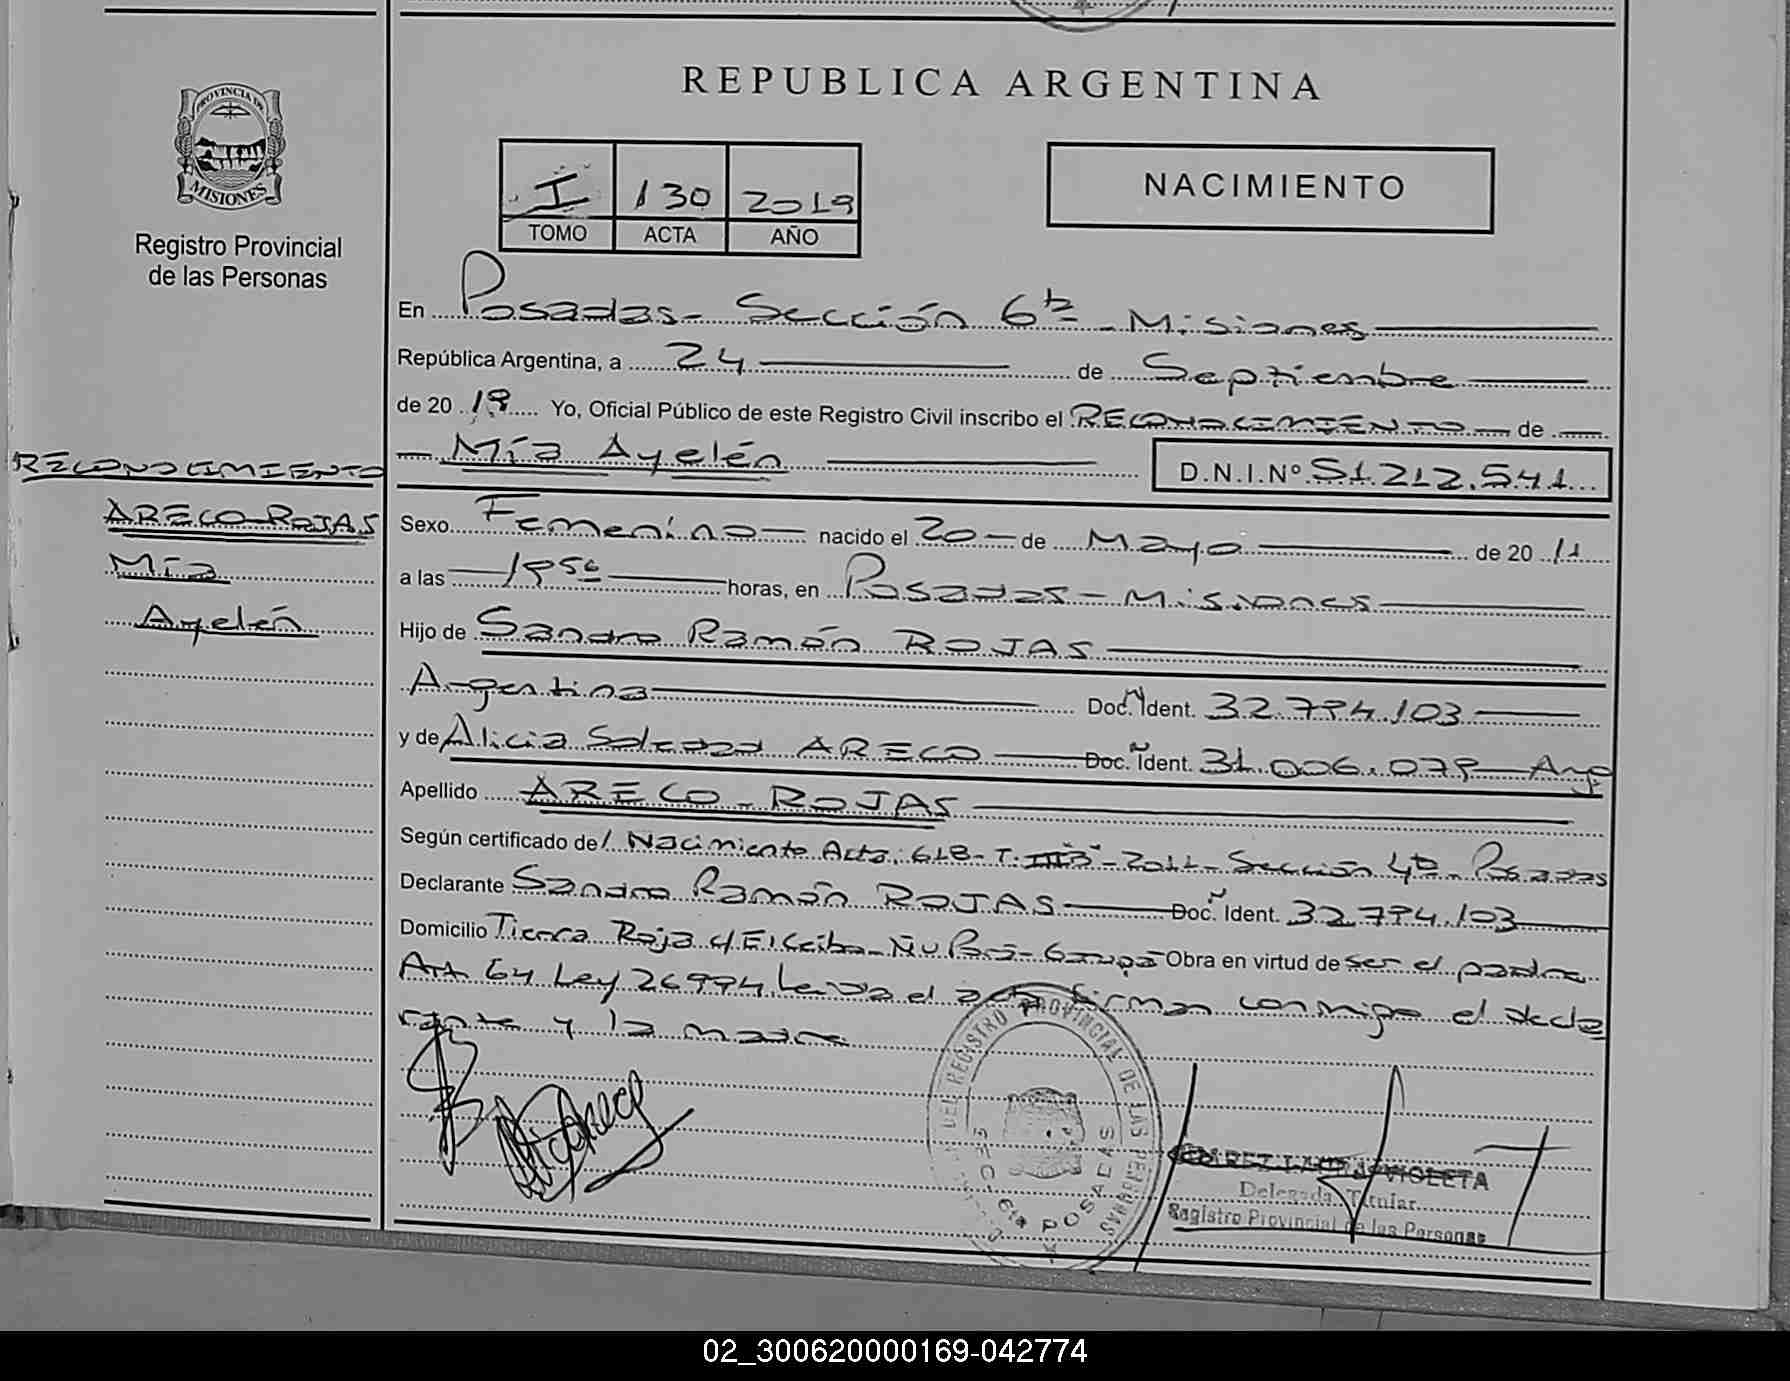 REPUBLICA ARGENTINA
PROVINCIA DE
MISIONES
Registro Provincial
de las Personas
I 130 2019
TOMO ACTA AÑO
NACIMIENTO
En Posadas - Sección 6ta - Misiones
República Argentina, a 24 de Septiembre
de 2019 Yo, Oficial Público de este Registro Civil inscribo el RECONOCIMIENTO de
Mía Ayelén D.N.I.Nº 51.212.541
RECONOCIMIENTO
ARECO ROJAS
Mía
Ayelén
Sexo Femenino nacido el 20 de Mayo de 2011
a las horas, en Posadas - Misiones
Hijo de Sandro Ramón ROJAS
Argentina Doc. Ident. 32.794.103
y de Alicia Soledad ARECO Doc. Ident. 31.006.079 Arg
Apellido ARECO - ROJAS
Según certificado de Nacimiento Acta: 618 - T. - 2011 - Sección 4ta - Posadas
Declarante Sandro Ramón ROJAS Doc. Ident. 32.794.103
Domicilio Tierra Roja c/ El Ceibo - Ñu Porá - Garupá Obra en virtud de ser el padre
Art. 64 Ley 26994. Leída el acta firman conmigo el decla
rante y la madre
REGISTRO PROVINCIAL DE LAS PERSONAS
POSADAS
VIOLETA
Delegada Titular
Registro Provincial de las Personas
02_300620000169-042774